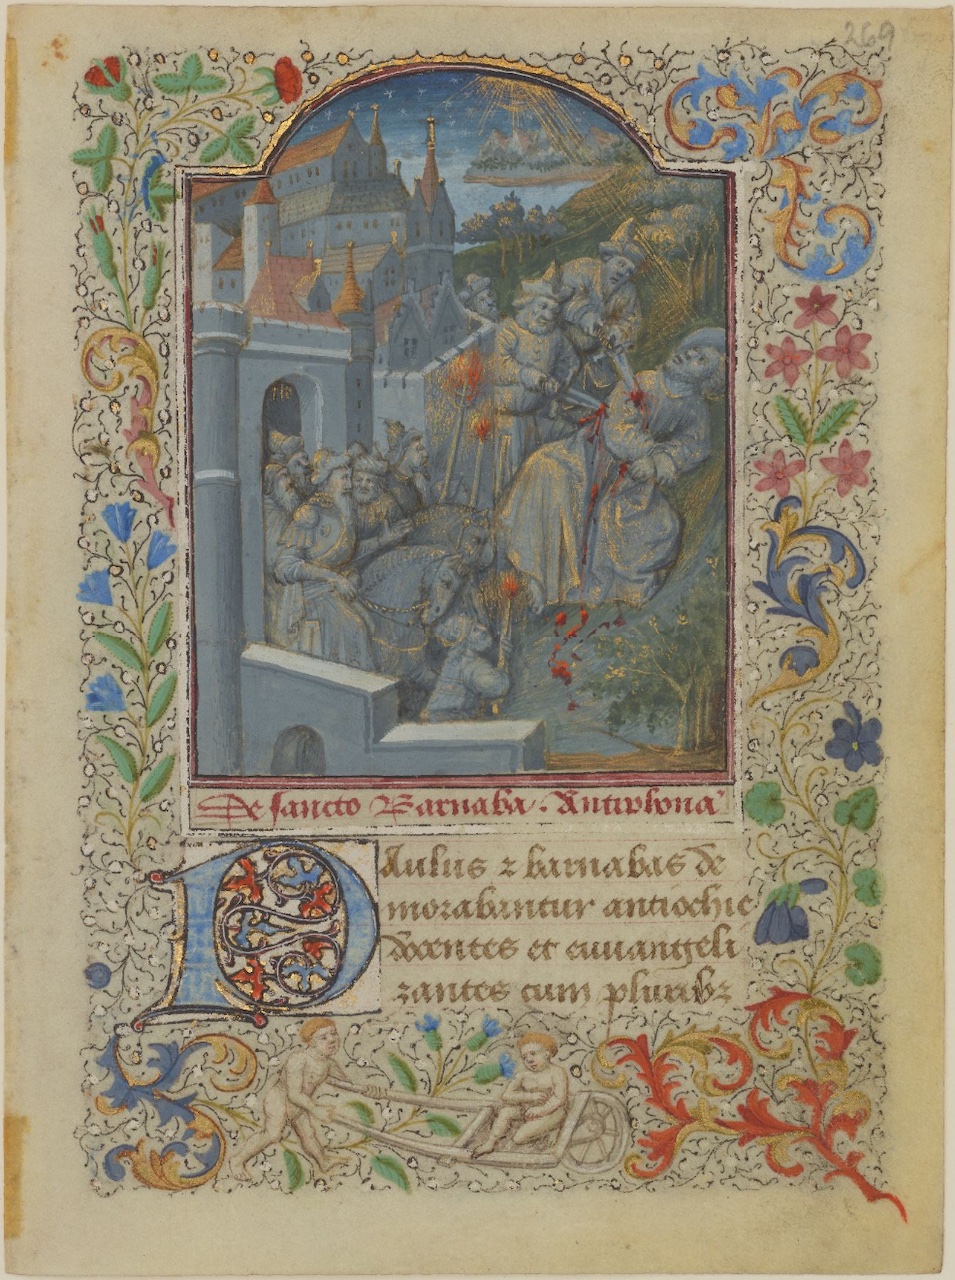 269
De sancto Barnaba. Antiphona
Paulus ⁊ barnabas de
morabantur antiochie
docentes et euuangeli
zantes cum pluribꝫ